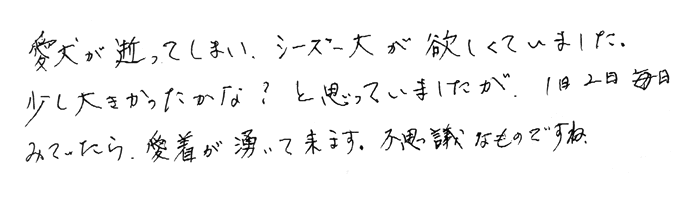 愛犬が逝ってしまい、シーズー犬が欲しくていました。
少し大きかったかな？と思っていましたが、1日2日毎日
みていたら、愛着が湧いて来ます。不思議なものですね、